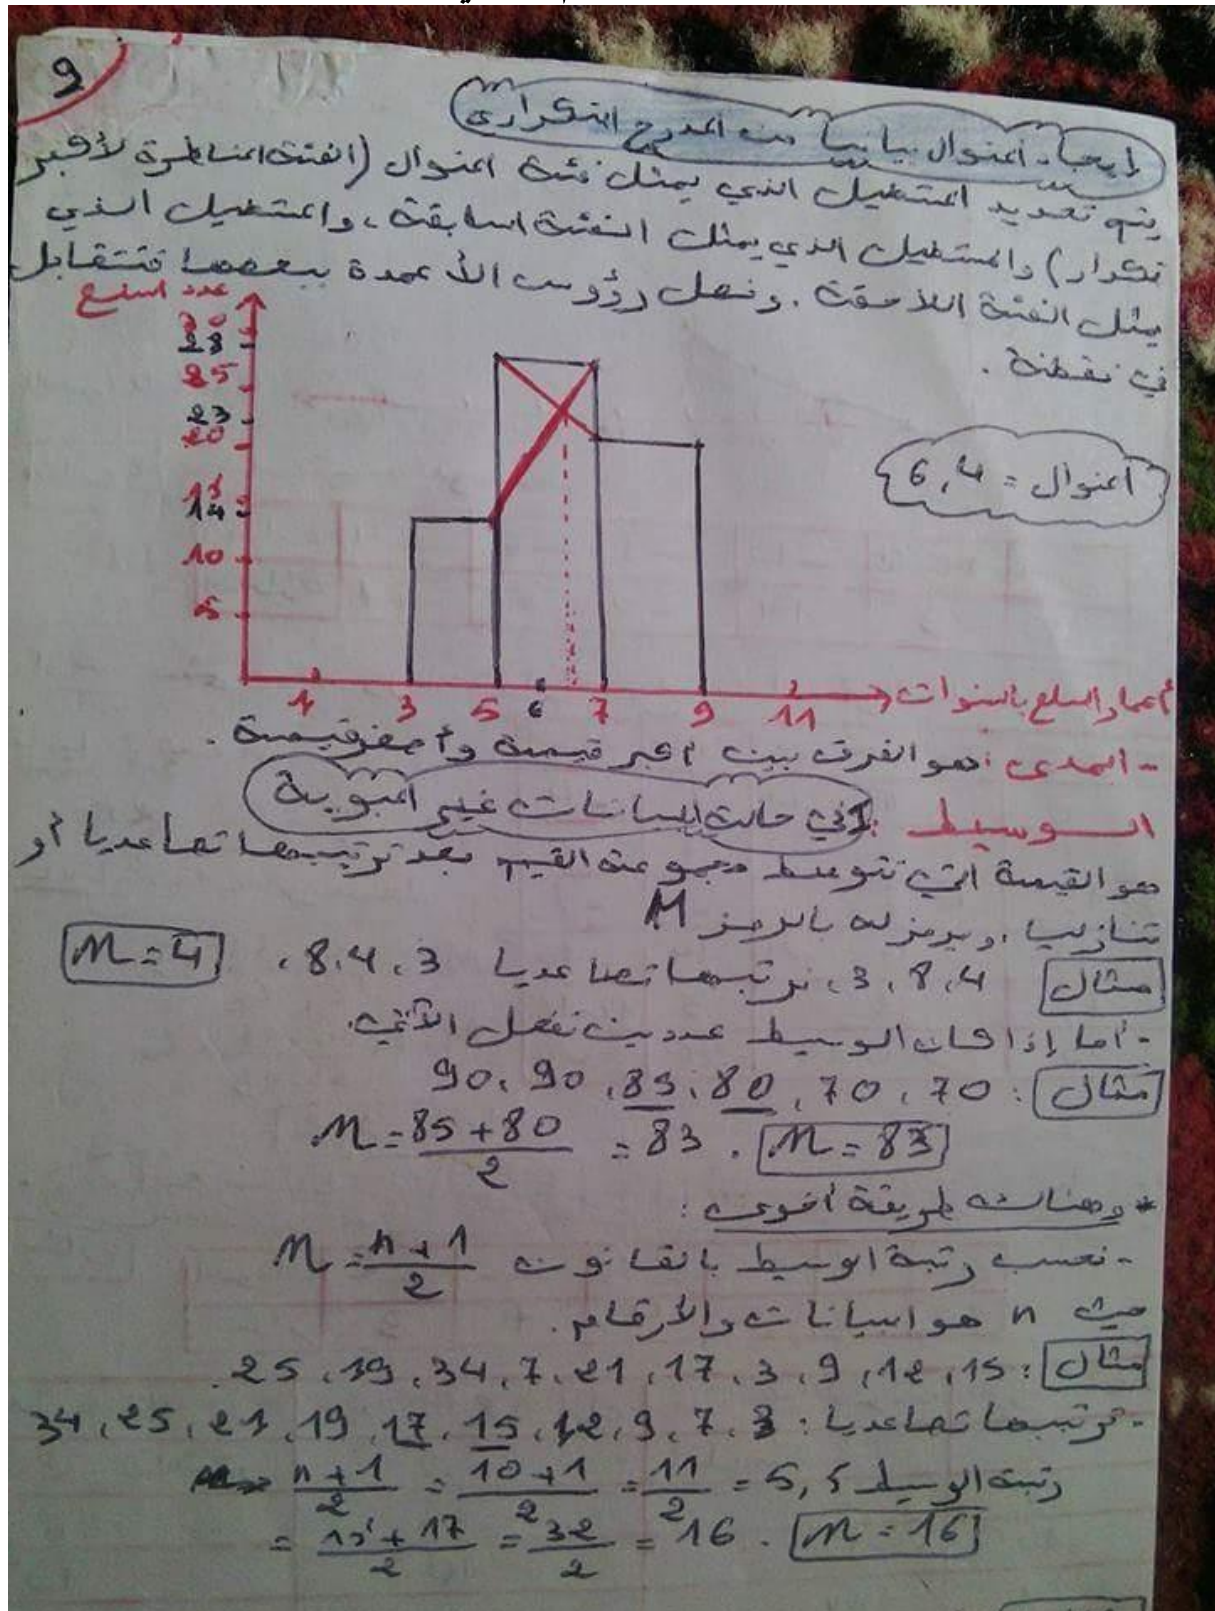 9
إيجاد المنوال بيانيا من المدرج التكراري
يتم تحديد المستطيل الذي يمثل فئة المنوال (الفئة المناظرة لأكبر
تكرار) والمستطيل الذي يمثل الفئة السابقة، والمستطيل الذي
يمثل الفئة اللاحقة. ونصل رؤوس الأعمدة ببعضها فتتقابل
في نقطة.
عدد السلع
30
28
25
23
20
15
14
10
5
المنوال = 6,4
1 3 5 6 7 9 11
أعمار السلع بالسنوات
- المدى: هو الفرق بين أكبر قيمة وأصغر قيمة.
الوسيط: في حالة البيانات غير المبوبة
هو القيمة التي تتوسط مجموعة القيم بعد ترتيبها تصاعديا أو
تنازليا، ويرمز له بالرمز M
مثال 4، 8، 3، نرتبها تصاعديا 3، 4، 8، M = 4
- أما إذا كان الوسيط عددين نفعل الآتي.
مثال: 70، 70، 80، 85، 90، 90
M = 85 + 80 / 2 = 83 . M = 83
* وهناك طريقة أخرى:
- نحسب رتبة الوسيط بالقانون M = n + 1 / 2
حيث n هو البيانات والأرقام.
مثال: 15، 12، 9، 3، 17، 21، 7، 34، 19، 25.
- نرتبها تصاعديا: 3، 7، 9، 12، 15، 17، 19، 21، 25، 34
رتبة الوسيط n + 1 / 2 = 10 + 1 / 2 = 11 / 2 = 5,5
= 15 + 17 / 2 = 32 / 2 = 16 . M = 16